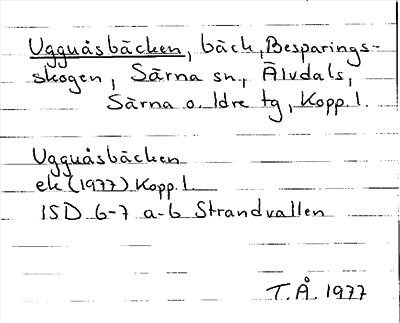 Ugguåsbäcken, bäck, Besparings-
skogen, Särna sn., Älvdals,
Särna o. Idre tg, Kopp. l.
Ugguåsbäcken
ek (1977) Kopp. l.
15D 6-7 a-b Strandvallen
T.Å. 1977